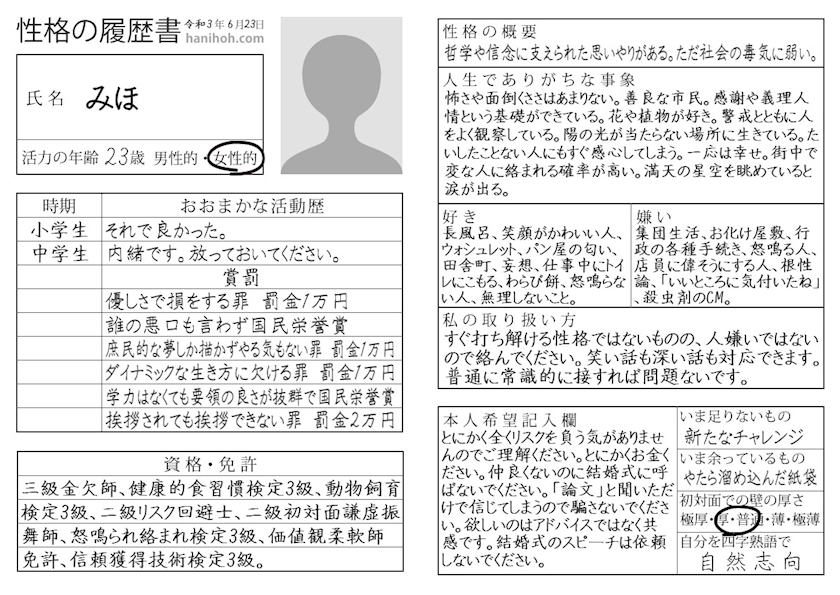 性格の履歴書 令和3年6月23日
hanihoh.com
氏名 みほ
活力の年齢 23歳 男性的・女性的
時期 おおまかな活動歴
小学生 それで良かった。
中学生 内緒です。放っておいてください。
賞罰
優しさで損をする罪 罰金1万円
誰の悪口も言わず国民栄誉賞
庶民的な夢しか描かずやる気もない罪 罰金1万円
ダイナミックな生き方に欠ける罪 罰金1万円
学力はなくても要領の良さが抜群で国民栄誉賞
挨拶されても挨拶できない罪 罰金2万円
資格・免許
三級金欠師、健康的食習慣検定3級、動物飼育
検定3級、二級リスク回避士、二級初対面謙虚振
舞師、怒鳴られ絡まれ検定3級、価値観柔軟師
免許、信頼獲得技術検定3級。
性格の概要
哲学や信念に支えられた思いやりがある。ただ社会の毒気に弱い。
人生でありがちな事象
怖さや面倒くささはあまりない。善良な市民。感謝や義理人
情という基礎ができている。花や植物が好き。警戒とともに人
をよく観察している。陽の光が当たらない場所に生きている。た
いしたことない人にもすぐ感心してしまう。一応は幸せ。街中で
変な人に絡まれる確率が高い。満天の星空を眺めていると
涙が出る。
好き
長風呂、笑顔がかわいい人、
ウォシュレット、パン屋の匂い、
田舎町、妄想、仕事中にトイ
レにこもる、わらび餅、怒鳴らな
い人、無理しないこと。
嫌い
集団生活、お化け屋敷、行
政の各種手続き、怒鳴る人、
店員に偉そうにする人、根性
論、「いいところに気付いたね」
、殺虫剤のCM。
私の取り扱い方
すぐ打ち解ける性格ではないものの、人嫌いではない
ので絡んでください。笑い話も深い話も対応できます。
普通に常識的に接すれば問題ないです。
本人希望記入欄
とにかく全くリスクを負う気がありませ
んのでご理解ください。とにかくお金く
ださい。仲良くないのに結婚式に呼
ばないでください。「論文」と聞いただ
けで信じてしまうので騙さないでくださ
い。欲しいのはアドバイスではなく共
感です。結婚式のスピーチは依頼
しないでください。
いま足りないもの
新たなチャレンジ
いま余っているもの
やたら溜め込んだ紙袋
初対面での壁の厚さ
極厚・厚・普通・薄・極薄
自分を四字熟語で
自然志向